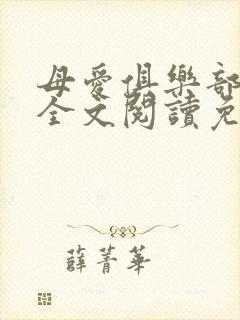 母愛俱樂部
全文閱讀免
薛菁華